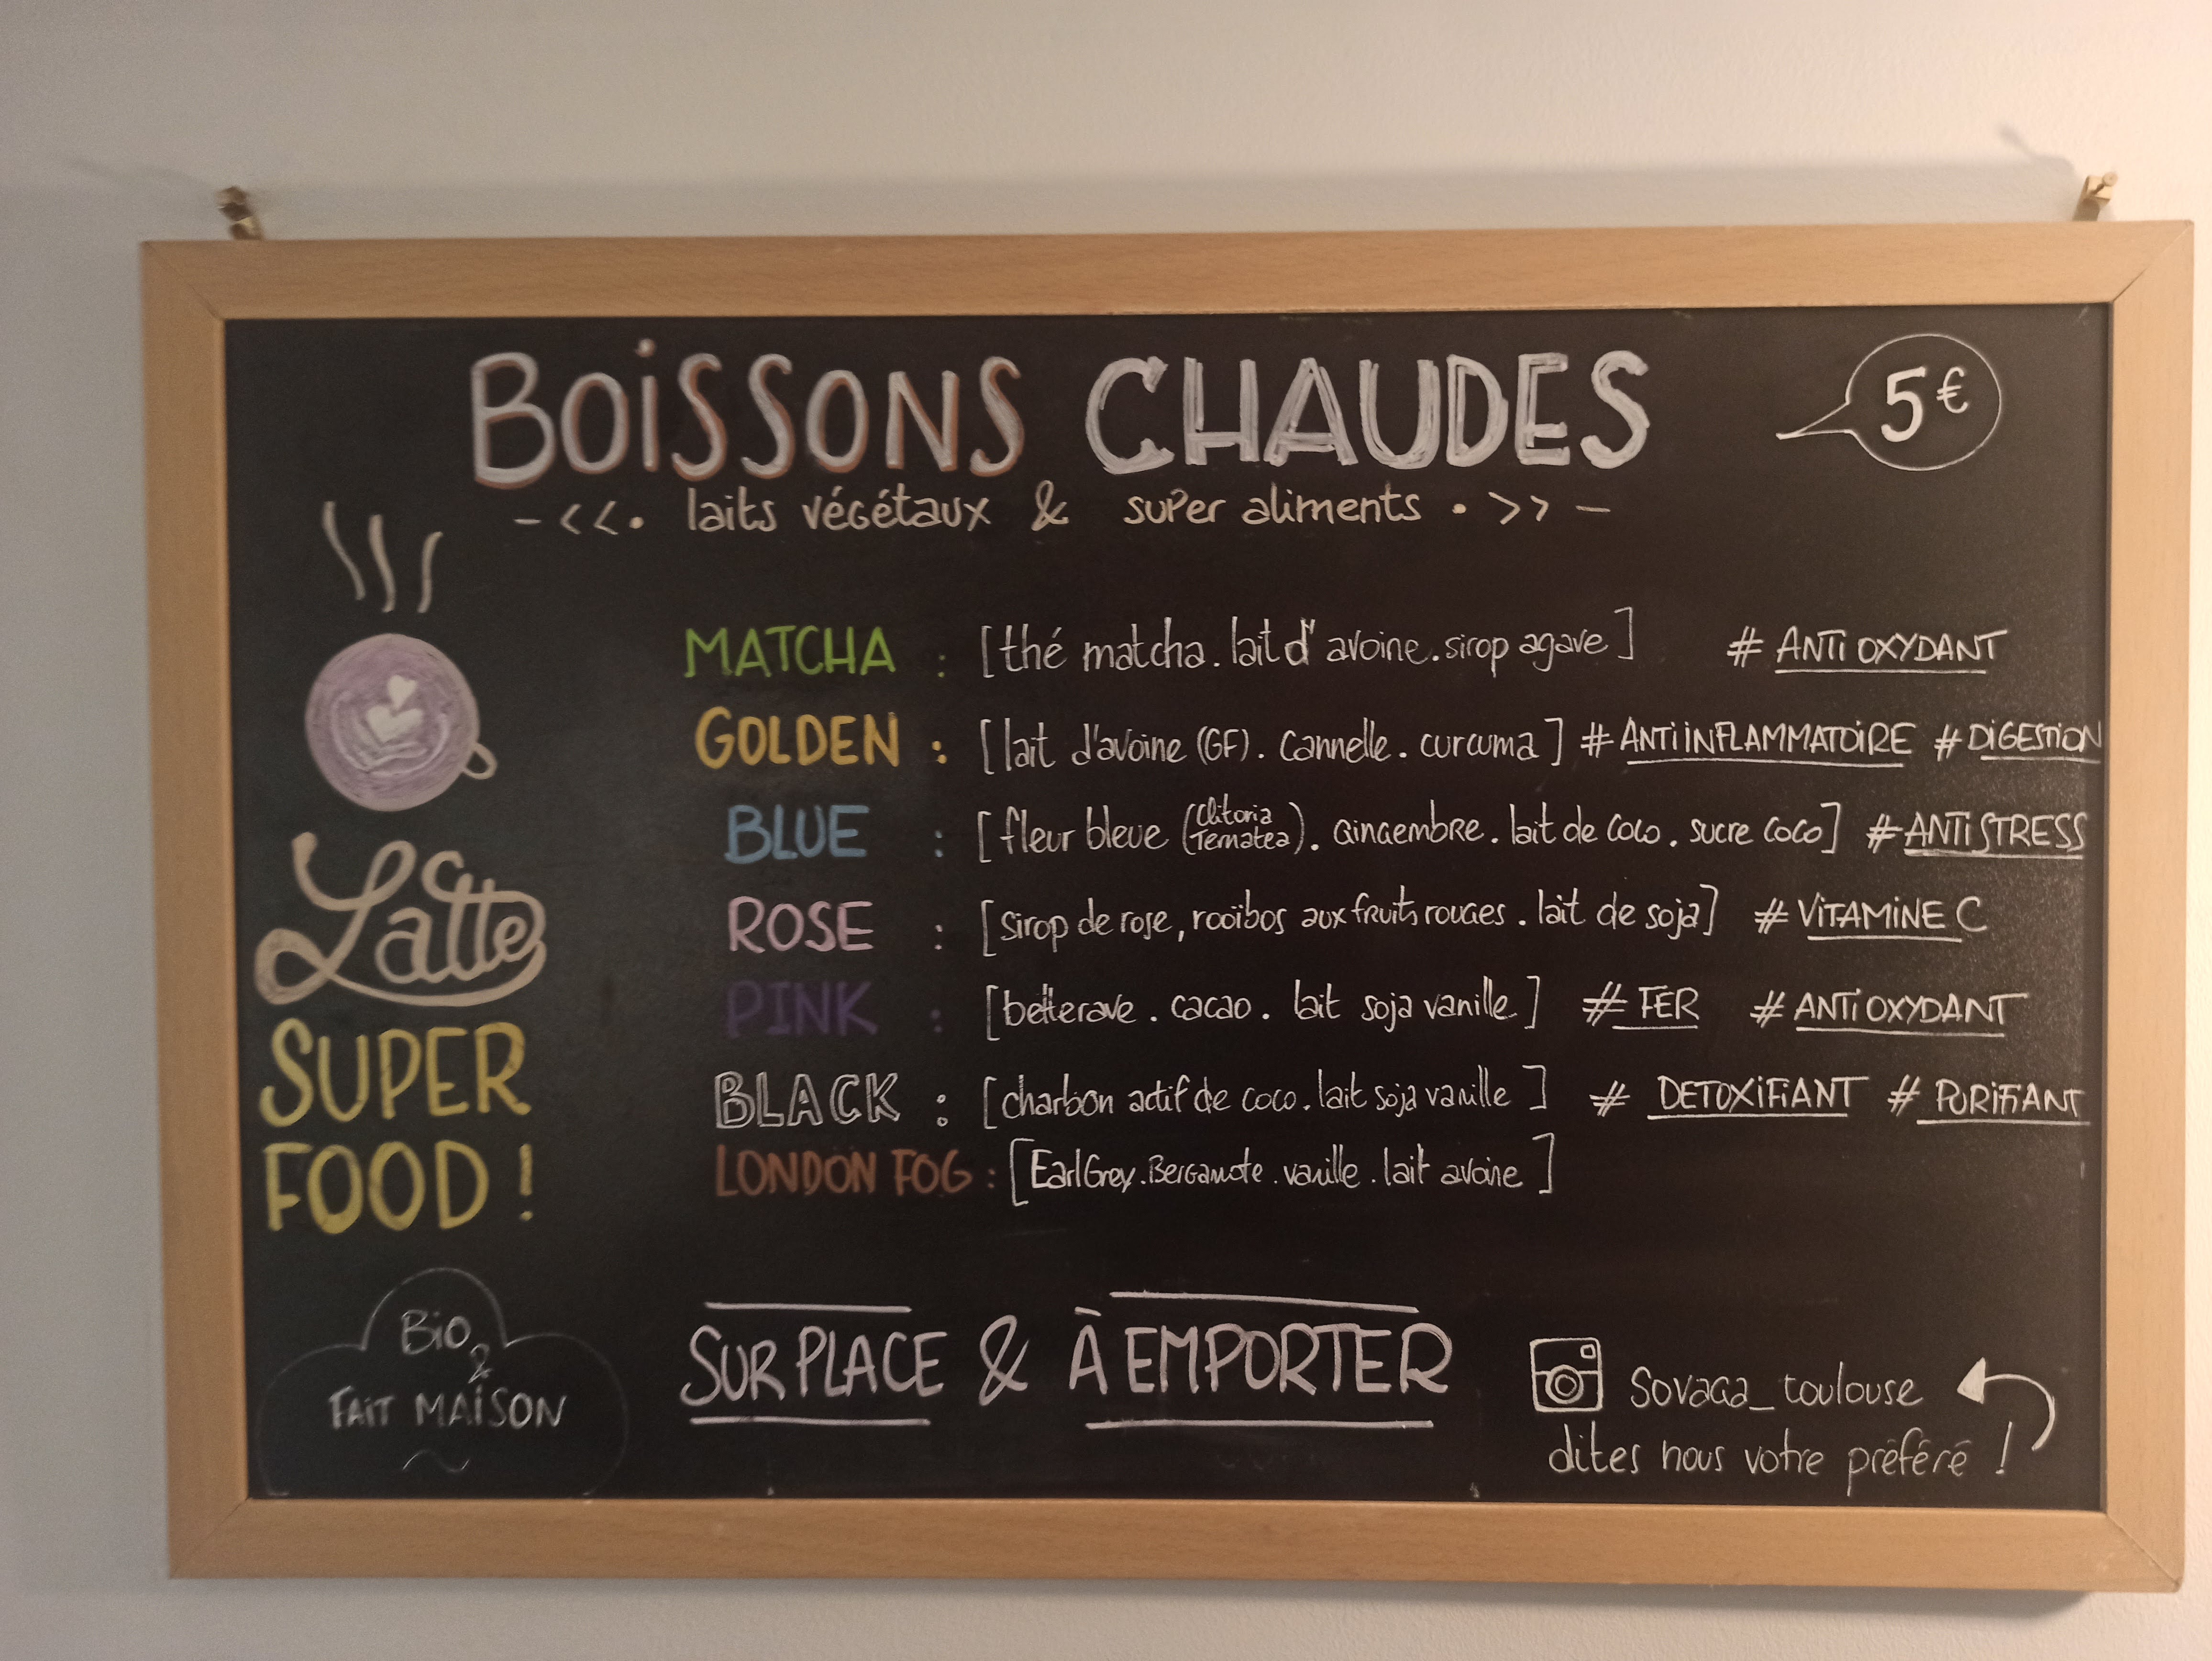 BOiSSONS CHAUDES
5€
-<<. laits végétaux & super aliments . >> -
MATCHA : [thé matcha. lait d'avoine. sirop agave] # ANTi OXYDANT
GOLDEN : [lait d'avoine (GF). Cannelle. curcuma] # ANTiiNFLAMMATOiRE # DiGESTiON
BLUE : [fleur bleue (Clitoria Ternatea). Gingembre. lait de Coco. sucre coco] # ANTiSTRESS
ROSE : [sirop de rose, rooïbos aux fruits rouges. lait de soja] # ViTAMiNE C
PINK : [betterave. cacao. lait soja vanille] # FER # ANTi OXYDANT
BLACK : [charbon actif de coco. lait soja vanille] # DETOXiFiANT # PURiFiANT
LONDON FOG : [Earl Grey. Bergamote. vanille. lait avoine]
Latte
SUPER
FOOD !
Bio
&
FAiT MAiSON
SUR PLACE & À EMPORTER
Sovaga_toulouse
dites nous votre préféré !